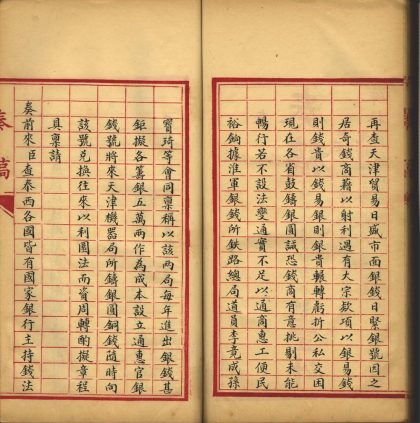 再查天津貿易日盛市面銀錢日緊銀號因之
居奇錢商藉以射利遇有大宗欵項以銀易錢
則錢貴以錢易銀則銀貴輾轉虧折公私交困
現在各省鼓鑄銀圓誠恐錢商有意挑剔未能
暢行若不設法變通實不足以通商惠工便民
裕餉據淮軍銀錢所鉄路總局道員李竟成孫
寶琦等會同稟稱以該兩局每年進出銀錢甚
鉅擬各籌銀五萬兩作為成本設立通惠官銀
錢號將來天津機器局所鑄銀圓銅錢隨時向
該號兑換往來以利圜法而資周轉酌擬章程
具稟請
奏前來臣查泰西各國皆有國家銀行主持錢法
奏稿